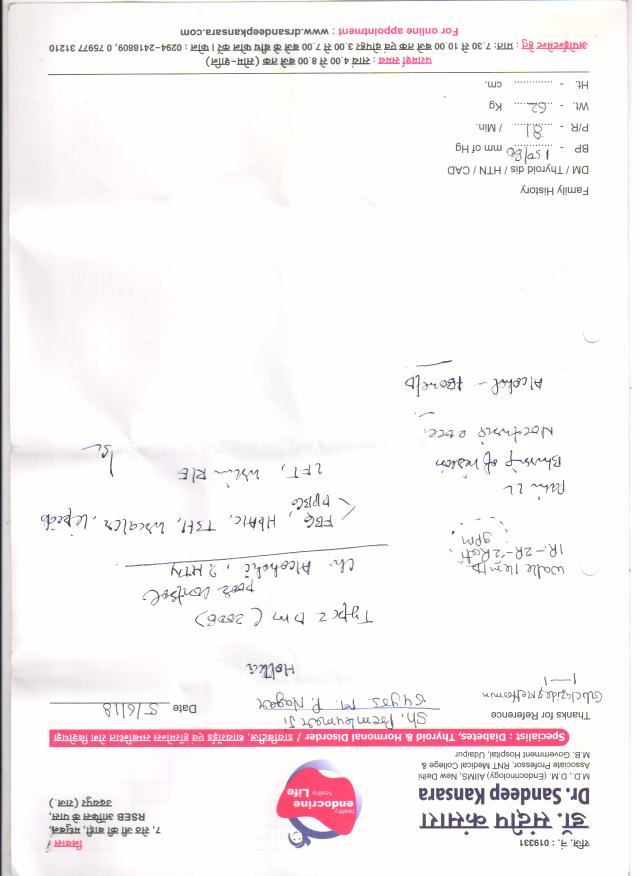 रजि. नं. : 019331
डॉ. संदीप कंसारा
Dr. Sandeep Kansara
M.D., D.M. (Endocrinology) AIIMS, New Delhi
Associate Professor, RNT Medical College &
M.B. Government Hospital, Udaipur
healthy
endocrine
Life
healthy
निवास
7, सेठ जी की बाड़ी, मधुबन,
RSEB ऑफिस के पास,
उदयपुर (राज.)
Specialist : Diabetes, Thyroid & Hormonal Disorder / डायबिटीज, थायरॉईड एवं हॉरमोन्स सम्बन्धित रोग विशेषज्ञ
Thanks for Reference
Date 5/6/18
Sh. Premkumar Ji
64yrs. M. P. Nagar
1—1
Type 2 DM (2006)
poor control
Ch. Alcoholic, ? HTN
Walk
1R-2R-2Roti
9pm
FBG, HbA1c, TSH, Lipids
PPBG
LFT, Urine R/E
Pain LL
Blurring of vision
Alcohol -
Family History
DM / Thyroid dis / HTN / CAD
BP - 150/80 mm of Hg
P/R - 81 / Min.
Wt. - 62 Kg
Ht. - ............. cm.
परामर्श समय : सायं 4.00 से 8.00 बजे तक (सोम-शनि)
अपोईन्टमेन्ट हेतु : प्रातः 7.30 से 10.00 बजे तक एवं दोपहर 3.00 से 7.00 बजे के बीच फोन करें । फोन : 0294-2418809, 0 75977 31210
For online appointment : www.drsandeepkansara.com